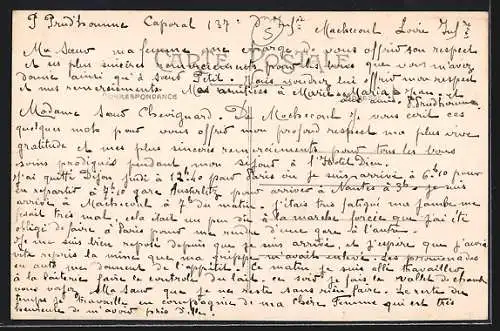 P Prudhomme Caporal 137e d'Infie Machecoul Loire Infre
Ma Sœur ma femme me charge de vous offrir son respect
et ses plus sincères remerciements pour les bons que vous m'avez
donné ainsi qu'à Petit. Vous voudrez lui offrir mon respect
et mes remerciements. Mes amitiés à Marie Maria Jean. et
CARTE POSTALE
CORRESPONDANCE
Prudhomme
Madame Sœur Chevignard. De Machecoul Je vous écris ces
quelques mots pour vous offrir mon profond respect ma plus vive
gratitude et mes plus sincères remerciements pour tous les bons
soins prodigués pendant mon séjour à l'Hôtel Dieu.
J'ai quitté Dijon jeudi à 12h40 pour Paris où je suis arrivé à 6h10 pour
En repartir à 7h10 gare Austerlitz pour arriver à Nantes à 3h je suis
arrivé à Machecoul à 7h du matin. J'étais très fatigué ma jambe me
fesait très mal, cela était un peu dû à la marche forcée que j'ai été
obligé de faire à Paris pour me rendre d'une gare à l'autre.
Je me suis bien reposé depuis que je suis arrivé, et j'espère que j'aurai
vite repris la mine que ma grippe m'avait enlevé. Les promenades
en auto me donnent de l'appétit. Ce matin je suis allé travailler
à la laiterie faire le contrôle du lait. Ce soir je fais le valet de chambre
vous voyez Ma Sœur que je ne reste sans rien faire. Le reste du
temps je travaille en compagnie de ma chère Femme qui est très
heureuse de m'avoir près d'elle.